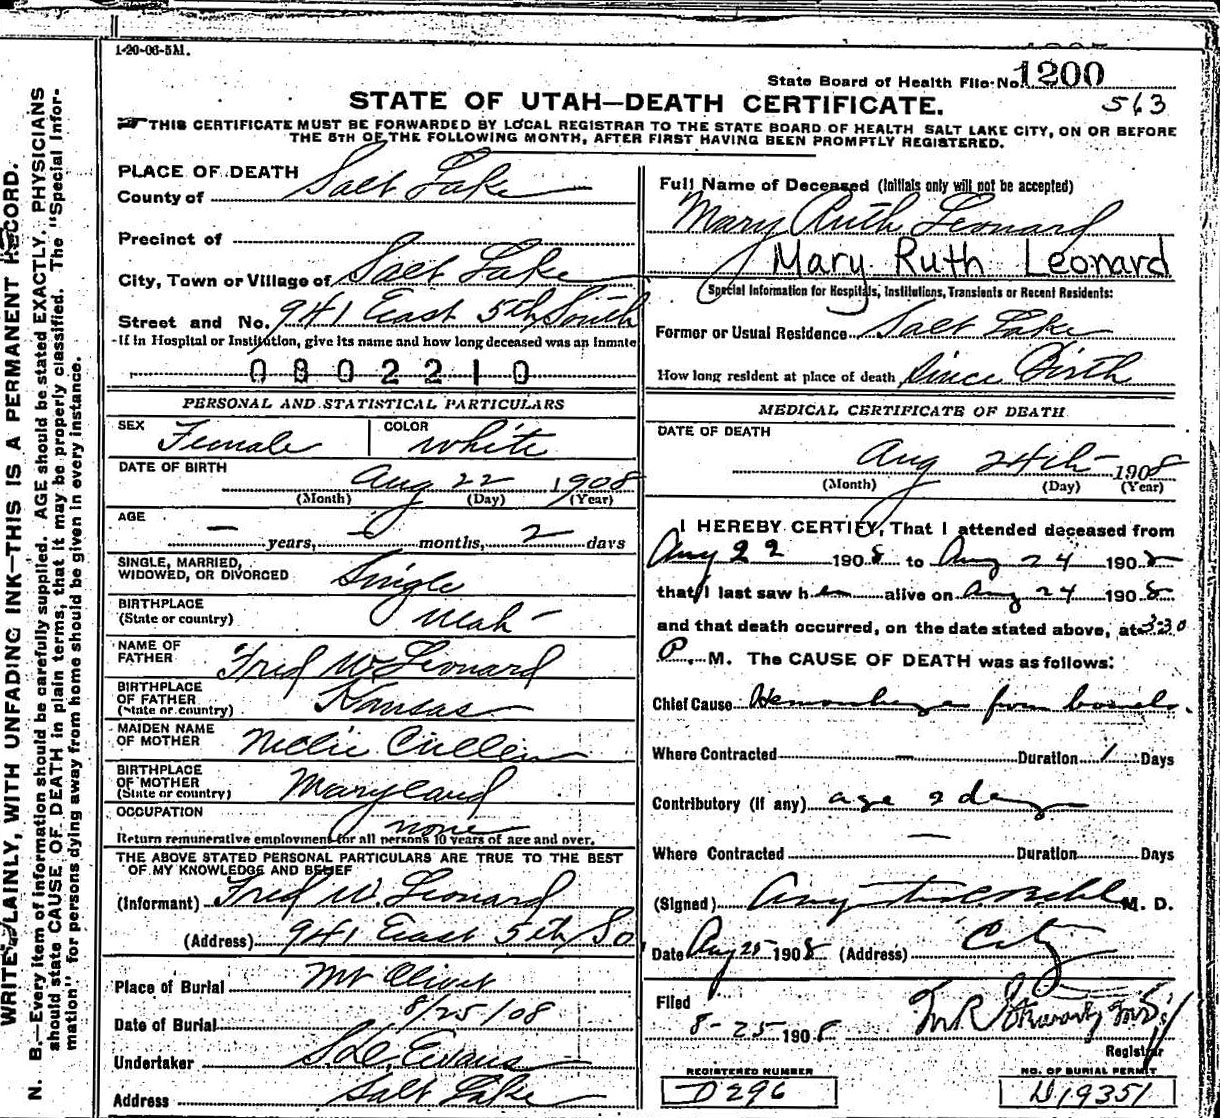 1-20-06-5M.
State Board of Health File No. 1200
563
STATE OF UTAH—DEATH CERTIFICATE.
THIS CERTIFICATE MUST BE FORWARDED BY LOCAL REGISTRAR TO THE STATE BOARD OF HEALTH SALT LAKE CITY, ON OR BEFORE
THE 5TH OF THE FOLLOWING MONTH, AFTER FIRST HAVING BEEN PROMPTLY REGISTERED.
WRITE PLAINLY, WITH UNFADING INK—THIS IS A PERMANENT RECORD.
N. B.—Every item of information should be carefully supplied. AGE should be stated EXACTLY. PHYSICIANS
should state CAUSE OF DEATH in plain terms, that it may be properly classified. The "Special Infor-
mation" for persons dying away from home should be given in every instance.
PLACE OF DEATH
County of Salt Lake
Precinct of
City, Town or Village of Salt Lake
Street and No. 941 East 5th South
If in Hospital or Institution, give its name and how long deceased was an inmate
0802210
PERSONAL AND STATISTICAL PARTICULARS
SEX Female COLOR White
DATE OF BIRTH
Aug 22 1908
(Month) (Day) (Year)
AGE
— years, — months, 2 days
SINGLE, MARRIED,
WIDOWED, OR DIVORCED Single
BIRTHPLACE
(State or country) Utah
NAME OF
FATHER Fred W Leonard
BIRTHPLACE
OF FATHER
(State or country) Kansas
MAIDEN NAME
OF MOTHER Nellie Cullen
BIRTHPLACE
OF MOTHER
(State or country) Maryland
OCCUPATION
none
Return remunerative employment for all persons 10 years of age and over.
THE ABOVE STATED PERSONAL PARTICULARS ARE TRUE TO THE BEST
OF MY KNOWLEDGE AND BELIEF
(Informant) Fred W. Leonard
(Address) 941 East 5th So
Place of Burial Mt Olivet
Date of Burial 8/25/08
Undertaker Evans
Address Salt Lake
Full Name of Deceased (Initials only will not be accepted)
Mary Ruth Leonard
Mary Ruth Leonard
Special Information for Hospitals, Institutions, Transients or Recent Residents:
Former or Usual Residence Salt Lake
How long resident at place of death Since Birth
MEDICAL CERTIFICATE OF DEATH
DATE OF DEATH
Aug 24th 1908
(Month) (Day) (Year)
I HEREBY CERTIFY, That I attended deceased from
Aug 22 1908 to Aug 24 1908
that I last saw her alive on Aug 24 1908
and that death occurred, on the date stated above, at 3:30
P. M. The CAUSE OF DEATH was as follows:
Chief Cause Hemorrhage from bowels.
Where Contracted — Duration 1 Days
Contributory (if any) age 2 days
—
Where Contracted Duration Days
(Signed) M. D.
Date Aug 25 1908 (Address) City
Filed
8-25-1908
Registrar
REGISTERED NUMBER
D296
NO. OF BURIAL PERMIT
D19351